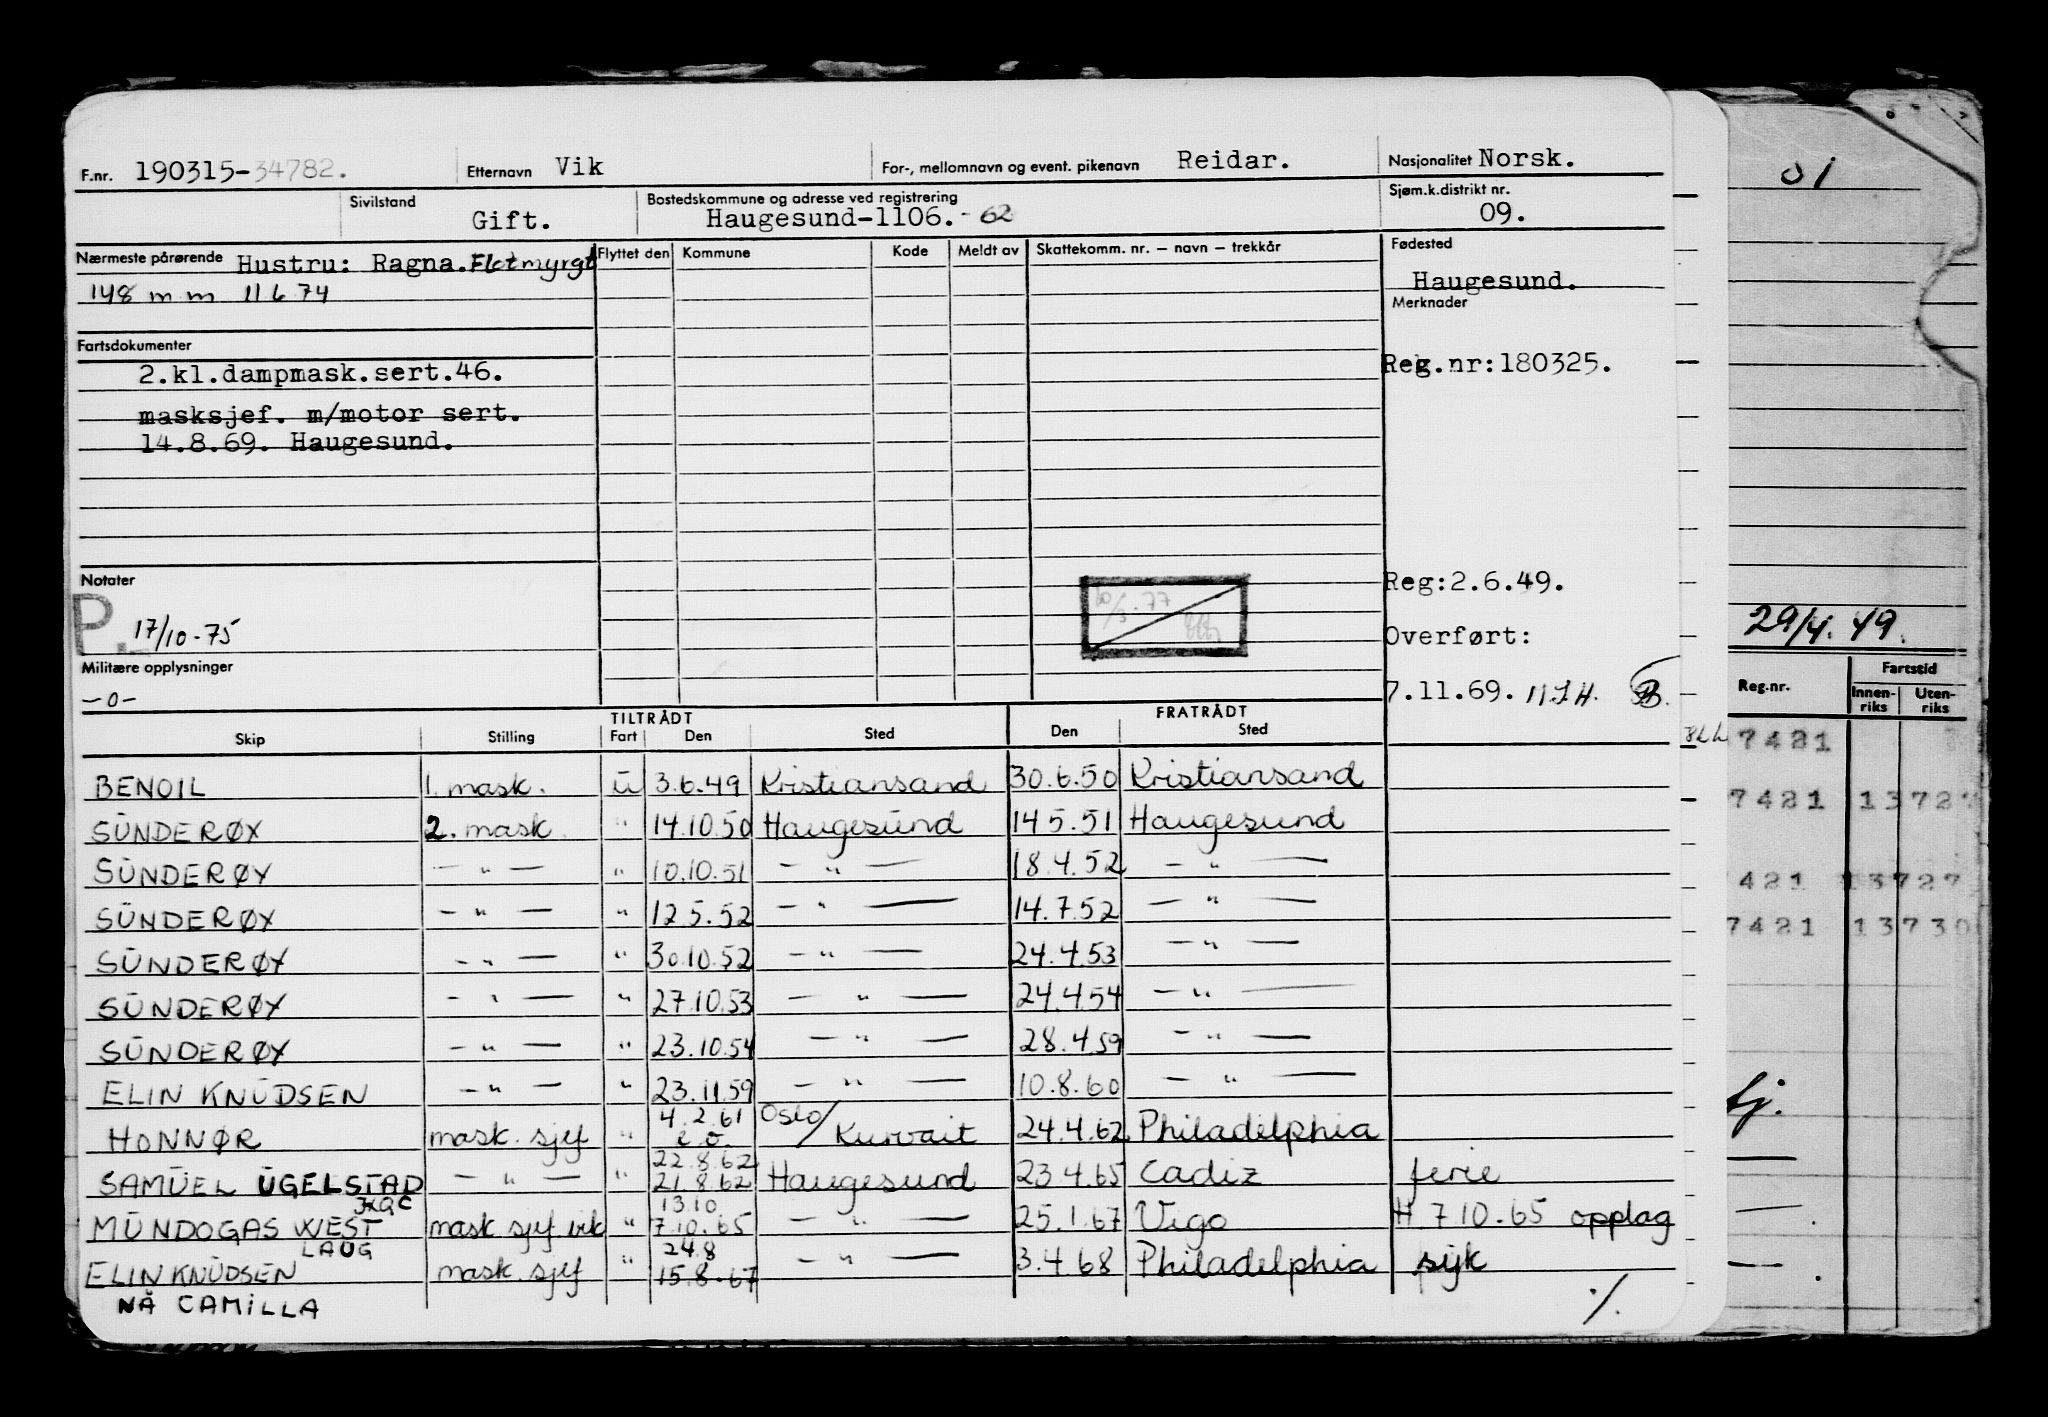 F.nr. 190315-34782. Etternavn Vik For-, mellomnavn og event. pikenavn Reidar. Nasjonalitet Norsk.
Sivilstand Gift. Bostedskommune og adresse ved registrering Haugesund-1106.-62 Sjøm.k.distrikt nr. 09.
Nærmeste pårørende Hustru: Ragna. Flotmyrgt Flyttet den Kommune Kode Meldt av Skattekomm. nr. – navn – trekkår Fødested
148 m m 11 6 74 Haugesund.
Merknader
Fartsdokumenter
2.kl.dampmask.sert.46. Reg.nr:180325.
masksjef. m/motor sert.
14.8.69. Haugesund.
Notater Reg:2.6.49.
P. 17/10-75 Overført:
Militære opplysninger
-0- 7.11.69.
TILTRÅDT FRATRÅDT
Skip Stilling Fart Den Sted Den Sted
BENOIL 1. mask. u 3.6.49 Kristiansand 30.6.50 Kristiansand
SUNDERØY 2. mask. " 14.10.50 Haugesund 14.5.51 Haugesund
SUNDERØY — " — " 10.10.51 — " — 18.4.52 — " —
SUNDERØY — " — " 12.5.52 — " — 14.7.52 — " —
SUNDERØY — " — " 30.10.52 — " — 24.4.53 — " —
SUNDERØY — " — " 27.10.53 — " — 24.4.54 — " —
SUNDERØY — " — " 23.10.54 — " — 28.4.59 — " —
ELIN KNUDSEN — " — " 23.11.59 — " — 10.8.60 — " —
4.2.61 Oslo/
HONNØR mask. sjef " e.o. Kuwait 24.4.62 Philadelphia
22.8.62
SAMUEL UGELSTAD — " — " 21.8.62 Haugesund 23.4.65 Cadiz ferie
13.10
MUNDOGAS WEST mask sjef vik " 7.10.65 — " — 25.1.67 Vigo H 7 10.65 opplag
LAUG 24.8
ELIN KNUDSEN mask. sjef " 15.8.67 — " — 3.4.68 Philadelphia syk
NÅ CAMILLA ./.
01
29/4.49.
Reg.nr. Fartstid
Innenriks Utenriks
7421
7421 13727
421 13727
7421 13730